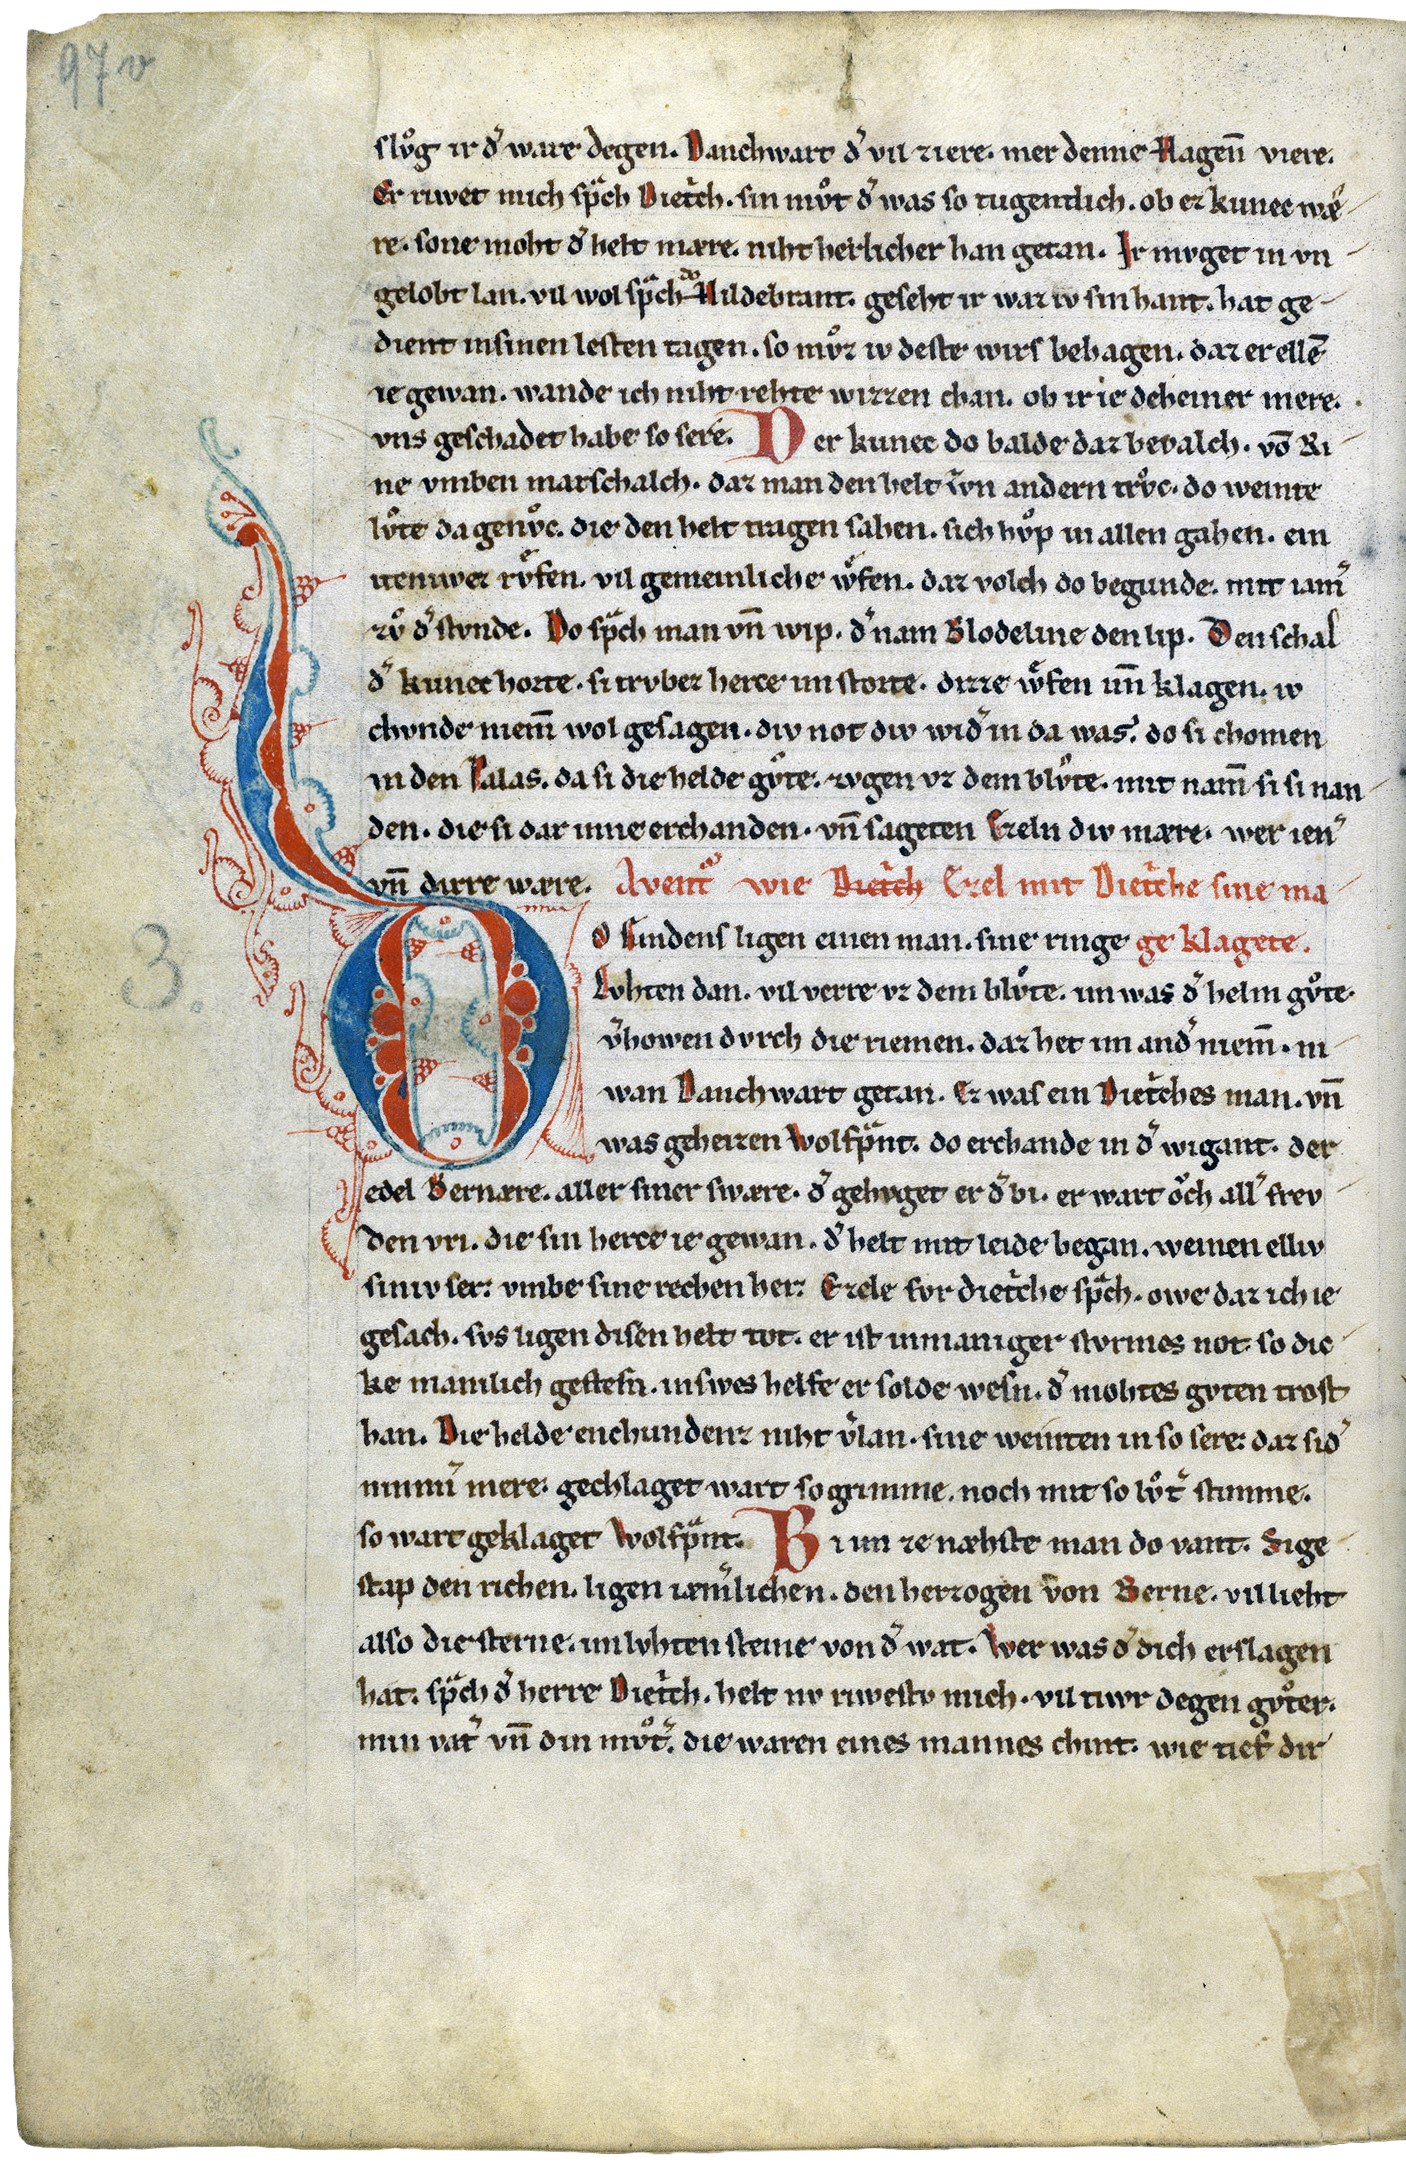 97v
slůg ir d͛ ware degen. Danchwart d͛ vil ziere. mer denne Hagen̄ viere.
Er riwet mich spͣch Diet͛ch. sin můt d͛ was so tugentlich. ob er kunec wæ
re. sone moht d͛ helt mære. niht herlicher han getan. Ir mvget in vn
gelobt lan. vil wol spͣch do Hildebrant. geseht ir waz iv sin hant. hat ge
dient in sinen lesten tagen. so můz iv deste wirs behagen. daz er ellē
ie gewan. wande ich niht rehte wizzen chan. ob ir ie deheiner mere.
vns geschadet habe so sere. Der kunec do balde daz bevalch. vō Ri
ne vmben marschalch. daz man den helt zvn andern trůc. do weinte
lůte da genůc. die den helt tragen sahen. sich hůp in allen gahen. ein
iteniwez růfen. vil gemeinliche wͦfen. daz volch do begunde. mit iam͛
zů d͛ stvnde. Do spͣch man vn̄ wip. d͛ nam Blodeline den lip. Den schal
d͛ kunec horte. si trvbez herce im storte. dizze wͦfen vn̄ klagen. iv
chvnde niem̄ wol gesagen. div not div wid͛ in da was. do si chomen
in den Palas. da si die helde gůte. zvgen vz dem blůte. mit nam̄ si si nan
den. die si dar inne erchanden. vn̄ sageten Ezeln div mære. wer ien͛
vn̄ dirre wære. Avent͛v wie Diet͛ch Ezel mit Diet͛che sine ma
Do findens ligen einen man. sine ringe ge klagete.
Lvhten dan. vil verre vz dem blůte. im was d͛ helm gůte.
v͛howen dvrch die riemen. daz het im and͛ niem̄. ni
wan Danchwart getan. Er was ein Diet͛ches man. vn̄
was geheizen Wolfpͣnt. do erchande in d͛ wigant. der
3.
edel Bernære. aller siner swære. d͛ gehvget er d͛ bi. er wart ǒch all͛ frev
den vri. die sin herce ie gewan. d͛ helt mit leide began. weinen elliv
siniv ser. vmbe sine rechen her. Ezele fvr diet͛che spͣch. owe daz ich ie
gesach. svs ligen disen helt tot. er ist in maniger stvrmes not. so dic
ke manlich gestesn. in swes helfe er solde wesn. d͛ mohtes gvten trost
han. Die helde enchundenz niht v͛lan. sine weinten in so sere. daz sid͛
nimm͛ mere. gechlaget wart so grimme. noch mit so lůt͛ stimme.
so wart geklaget Wolfpͣnt. Bi im ze næhste man do vant. Sige
stap den richen. ligen iæm͛lichen. den herzogen von Berne. vil lieht
also die sterne. im lvhten steine von d͛ wat. Wer was d͛ dich erslagen
hat. spͣch d͛ herre Diet͛ch. helt nv riwestv mich. vil tivr degen gůter.
min vat͛ vn̄ din můt͛. die waren eines mannes chint. wie tief dir